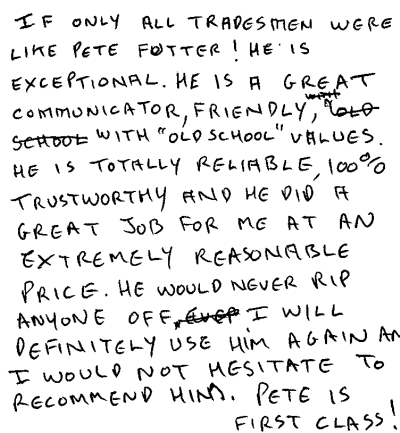 IF ONLY ALL TRADESMEN WERE
LIKE PETE FOTTER! HE IS
EXCEPTIONAL. HE IS A GREAT
COMMUNICATOR, FRIENDLY, "OLD
SCHOOL WITH "OLD SCHOOL" VALUES.
HE IS TOTALLY RELIABLE, 100%
TRUSTWORTHY AND HE DID A
GREAT JOB FOR ME AT AN
EXTREMELY REASONABLE
PRICE. HE WOULD NEVER RIP
ANYONE OFF, I WILL
DEFINITELY USE HIM AGAIN AN
I WOULD NOT HESITATE TO
RECOMMEND HIM. PETE IS
FIRST CLASS!